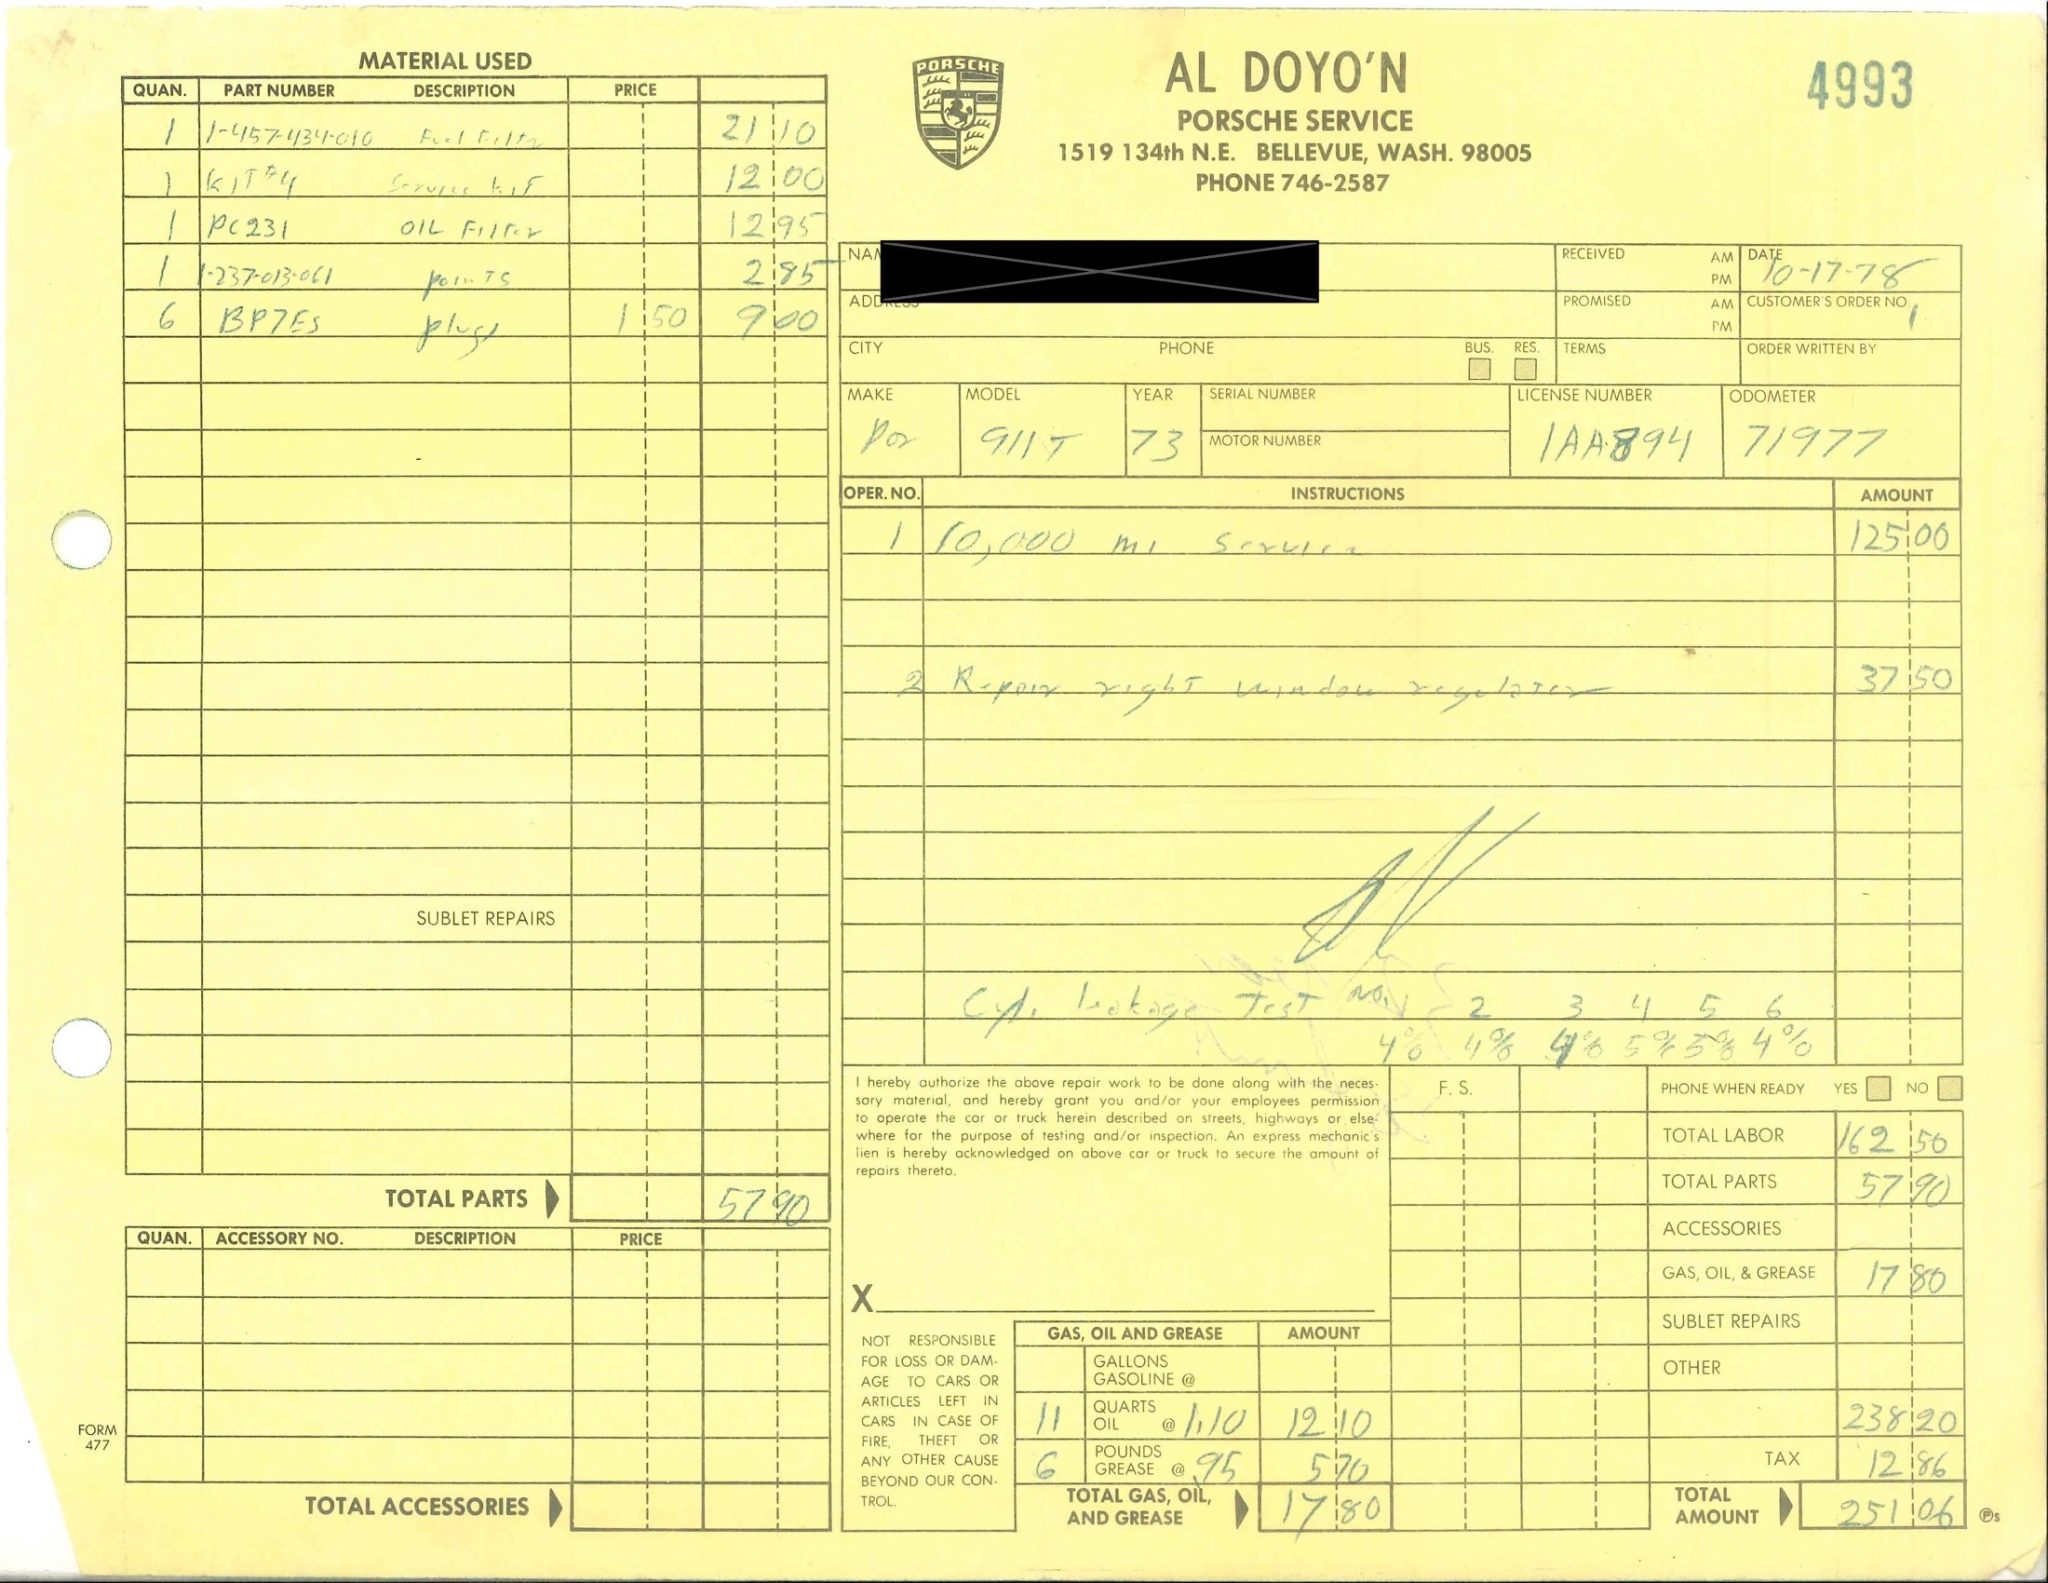 MATERIAL USED
QUAN. PART NUMBER DESCRIPTION PRICE
1 1-457-434-010 Fuel Filter 21 10
1 KIT #4 Service KIT 12 00
1 PC231 OIL Filter 12 95
1 1-237-013-061 points 2 85
6 BP7ES plugs 1 50 9 00
SUBLET REPAIRS
TOTAL PARTS 57 90
QUAN. ACCESSORY NO. DESCRIPTION PRICE
FORM
477
TOTAL ACCESSORIES
PORSCHE
AL DOYO'N
PORSCHE SERVICE
1519 134th N.E. BELLEVUE, WASH. 98005
PHONE 746-2587
4993
RECEIVED AM PM DATE 10-17-78
ADDRESS PROMISED AM PM CUSTOMER'S ORDER NO. 1
CITY PHONE BUS. RES. TERMS ORDER WRITTEN BY
MAKE MODEL YEAR SERIAL NUMBER LICENSE NUMBER ODOMETER
Por 911T 73 MOTOR NUMBER 1AA894 71977
OPER. NO. INSTRUCTIONS AMOUNT
1 10,000 mi Service 125 00
2 Repair right window regulator 37 50
Cyl. Leakage Test no. 1 2 3 4 5 6
4% 4% 4% 5% 5% 4%
I hereby authorize the above repair work to be done along with the neces-
sory material, and hereby grant you and/or your employees permission
to operate the car or truck herein described on streets, highways or else-
where for the purpose of testing and/or inspection. An express mechanic's
lien is hereby acknowledged on above car or truck to secure the amount of
repairs thereto.
X
NOT RESPONSIBLE
FOR LOSS OR DAM-
AGE TO CARS OR
ARTICLES LEFT IN
CARS IN CASE OF
FIRE, THEFT OR
ANY OTHER CAUSE
BEYOND OUR CON-
TROL.
GAS, OIL AND GREASE AMOUNT
GALLONS
GASOLINE @
11 QUARTS OIL @ 1.10 12 10
6 POUNDS GREASE @ .95 5 70
TOTAL GAS, OIL,
AND GREASE 17 80
F. S.
PHONE WHEN READY YES NO
TOTAL LABOR 162 50
TOTAL PARTS 57 90
ACCESSORIES
GAS, OIL, & GREASE 17 80
SUBLET REPAIRS
OTHER
238 20
TAX 12 86
TOTAL
AMOUNT 251 06